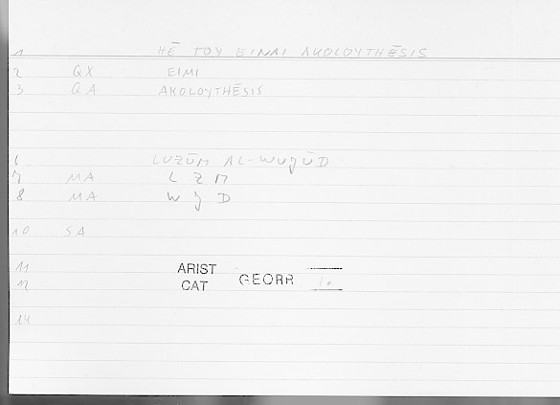 1 HĒ TOY EINAI AKOLOYTHĒSIS
2 QX EIMI
3 QA AKOLOYTHĒSIS
6 LUZŪM AL-WUǦŪD
7 MA L Z M
8 MA W Ǧ D
10 SA
11 ARIST
12 CAT GEORR
14